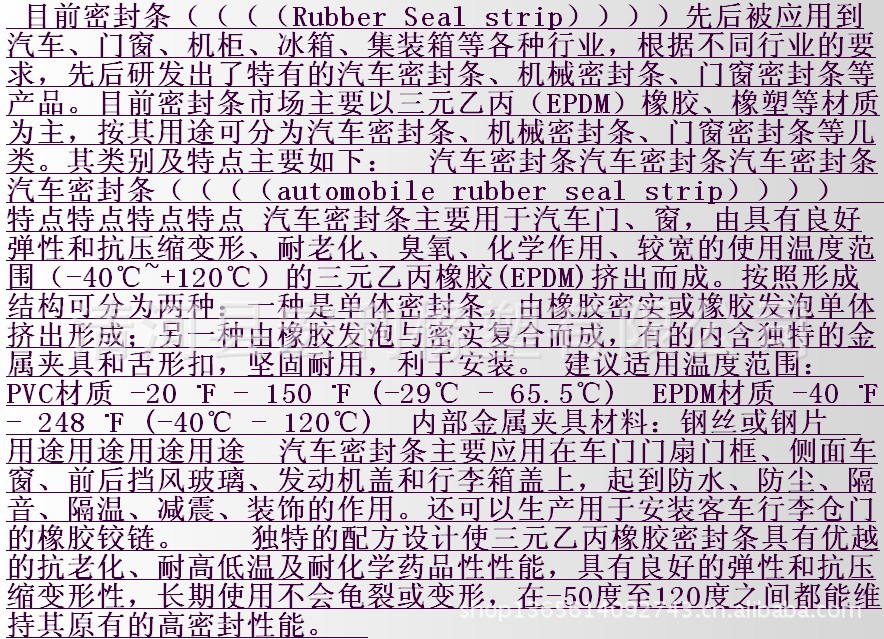 目前密封条（（（（Rubber Seal strip））））先后被应用到
汽车、门窗、机柜、冰箱、集装箱等各种行业，根据不同行业的要
求，先后研发出了特有的汽车密封条、机械密封条、门窗密封条等
产品。目前密封条市场主要以三元乙丙（EPDM）橡胶、橡塑等材质
为主，按其用途可分为汽车密封条、机械密封条、门窗密封条等几
类。其类别及特点主要如下： 汽车密封条汽车密封条汽车密封条
汽车密封条（（（（automobile rubber seal strip））））
特点特点特点特点 汽车密封条主要用于汽车门、窗，由具有良好
弹性和抗压缩变形、耐老化、臭氧、化学作用、较宽的使用温度范
围（-40℃~+120℃）的三元乙丙橡胶(EPDM)挤出而成。按照形成
结构可分为两种：一种是单体密封条，由橡胶密实或橡胶发泡单体
挤出形成；另一种由橡胶发泡与密实复合而成，有的内含独特的金
属夹具和舌形扣，坚固耐用，利于安装。 建议适用温度范围：
PVC材质 -20 ℉ - 150 ℉ (-29℃ - 65.5℃) EPDM材质 -40 ℉
- 248 ℉ (-40℃ - 120℃) 内部金属夹具材料：钢丝或钢片
用途用途用途用途 汽车密封条主要应用在车门门扇门框、侧面车
窗、前后挡风玻璃、发动机盖和行李箱盖上，起到防水、防尘、隔
音、隔温、减震、装饰的作用。还可以生产用于安装客车行李仓门
的橡胶铰链。 独特的配方设计使三元乙丙橡胶密封条具有优越
的抗老化、耐高低温及耐化学药品性性能，具有良好的弹性和抗压
缩变形性，长期使用不会龟裂或变形，在-50度至120度之间都能维
持其原有的高密封性能。